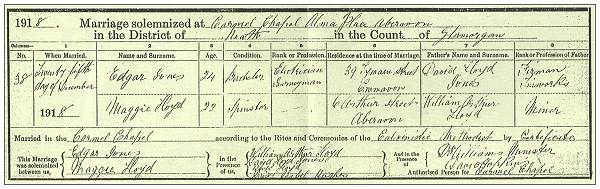 1918. Marriage solemnized at Carmel Chapel Alma Place Aberavon
in the District of Neath in the County of Glamorgan
Columns:— 1 2 3 4 5 6 7 8
No. When Married. Name and Surname. Age. Condition. Rank or Profession. Residence at the time of Marriage. Father's Name and Surname. Rank or Profession of Father
38 Twenty fifth day of December 1918 Edgar Jones 24 Bachelor Electrician Journeyman 39 Street Cwmavon David Lloyd Jones Fireman
Maggie Lloyd 22 Spinster 6 Arthur Street Aberavon William Lloyd Miner
Married in the Carmel Chapel according to the Rites and Ceremonies of the Calvinistic Methodist by Certificate
This Marriage was solemnized between us, Edgar Jones Maggie Lloyd in the Presence of us, William Arthur Lloyd And in the Presence of Williams Minister Authorised Person for Carmel Chapel